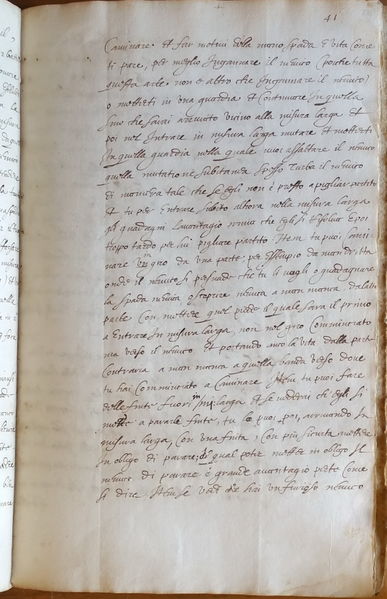 41
Caminare et far motivi della nostro spada e vita come
ti pare, per meglio Ingannare il nemico perche tutta
questa arte non è altro che Ingannare il nemico
o mettesti in una guardia et Continuare In quella
sino che sarai arrivato vicino alla misura larga et
poi nel Intrare in misura larga mutare et metterti
In quella guardia nella quale vuoi assaltare il nemico
quella mutatione subitanea spesso Turba il nemico
di maniera tale che se egli non è presto a pigliar partito
et tu per Entrare subito alhora nella misura larga
gli guadagni l'avantagio prima che egli si risolva E poi
troppo tardo per lui pigliare partito Item tu puoi Cami-
nare verso da una parte; per Essempio da man dritta
onde il nemico si persuade che tu li vogli o guadagnare
la spada nemica o scoprire nemico a man manca dalla
parte Con mettere quel piede il quale sarà il primo
a Entrare In misura larga, non nel loco Comminciato
ma verso il nemico et portando anco la vita dalla parte
Contraria a man manca a quella banda verso dove
tu hai Comminciato a Caminare Item tu puoi fare
delle finte fuori In mis. larga et se vederai che Egli si
mette a parar le finte, tu lo puoi poi, arrivando In
misura larga, Con una finta, Con più sicurtà mettere
In obligo di parare; di qual poter mettere in obligo Il
nemico di parare è grande avantagio presto Come
si dice Item se vedi che hai un furioso nemico